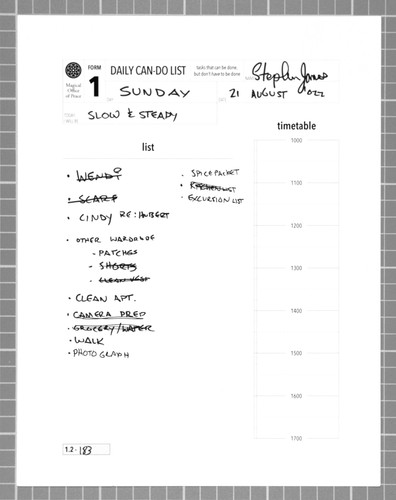 FORM
1
Magical
Office
of Peace
DAILY CAN-DO LIST
tasks that can be done,
but don't have to be done
SUNDAY
21 AUGUST 2022
SLOW & STEADY
list
timetable
• WENDI
• SCARF
• CINDY RE: HUBERT
• OTHER WARDROBE
- PATCHES
- SHORTS
- CLEAN VEST
• CLEAN APT.
• CAMERA PREP
• GROCERY/WATER
• WALK
• PHOTOGRAPH
• SPICE PACKET
• EXCURSION LIST
1000
1100
1200
1300
1400
1500
1600
1700
1.2 - 183